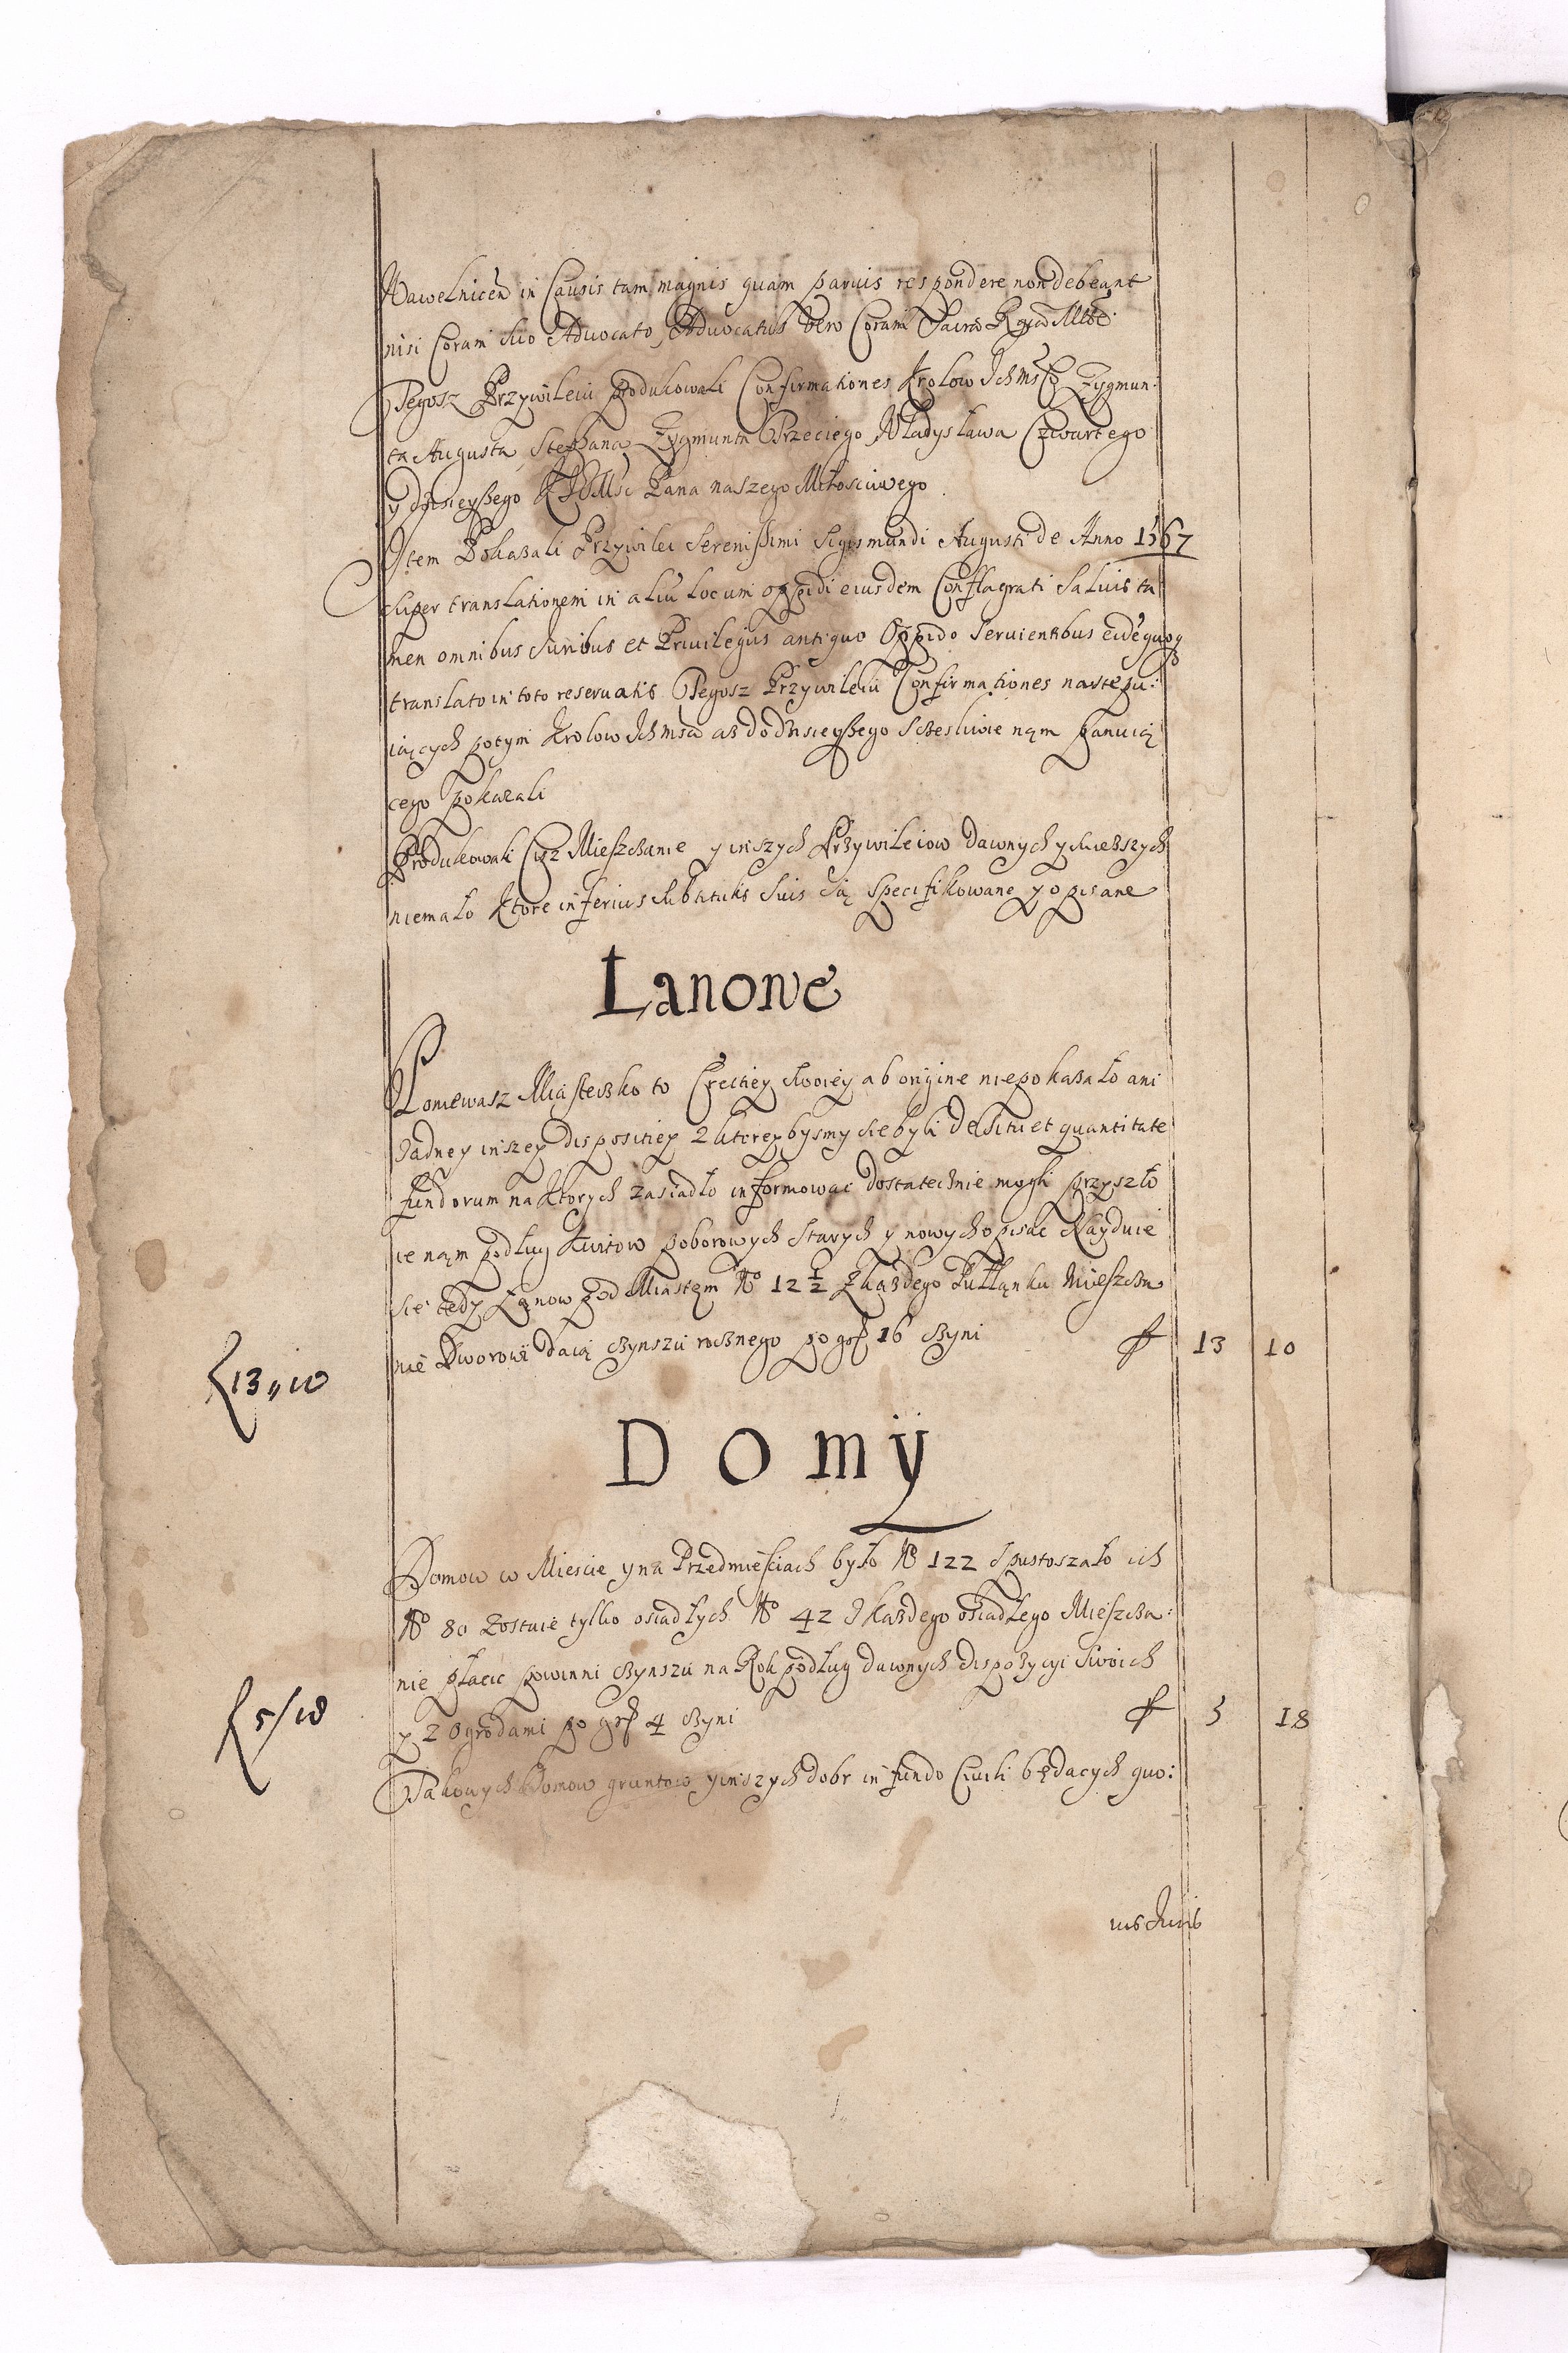 Wawelnicen in Causis tam magnis quam paruis respondere non debeant
nisi Coram suo Aduocato, Aduocatus vero Coram Sacra Regia Mtte
Tegosz Przywileiu produkowali Confirmationes Krolow Ichmsc Zygmun:
ta Augusta, Stephana, Zygmunta Trzeciego, Władysława Czwartego
y dzisieyßego KJMsci Pana naszego Miłosciwego
Item Pokazali Przywilei Serenissimi Sigismundi Augusti de Anno 1567
super translationem in aliu locum oppidi eiusdem Conflagrati Saluis ta
men omnibus Juribus et Priuilegiis antiquo Oppido seruientibus eidē quoq
translato in toto reseruatis Tegosz Przywileiu Confirmationes nastepu:
iących potym Krolow Ichmsci asz do dzisieyßego sczesliwie nąm Panuią
cego pokazali
Produkowali Ciz Mieszczanie y inszych Przywileiow dawnych y swieższych
niemało Ktore inferius sub titulis suis są specifikowane y opisane
Lanowe
Poniewasz Miasteczko to Erectiey swoiey ab origine niepokazało ani
żadney inszey dispositiey z ktorey bysmy sie byli de situ et quantitate
fundorum na Ktorych zasiadło informowac dostatecznie mogli przyszło
ie nąm podług Kwitow poborowych starych y nowych opisac Nayduie
sie tedy Łanow pod Miastęm No 12 1/2 z każdego Pułłanku Mieszcza
nie Dworowi daią czynszu rocznego po gr 16 czyni f 13 10
13 " 10
Domÿ
Domow w Miescie y na Przedmieściach było No 122 spustoszało ich
No 80 zostaie tylko osiadłych No 42 z każdego osiadłego Mieszcza:
nie płacic powinni czynszu na Rok podług dawnych dispozycyi swoich
y z ogrodami po gr 4 czyni f 5 18
5/18
Takowych Domow gruntow y inszych dobr in fundo Ciuili będacych quo:
uis Juris